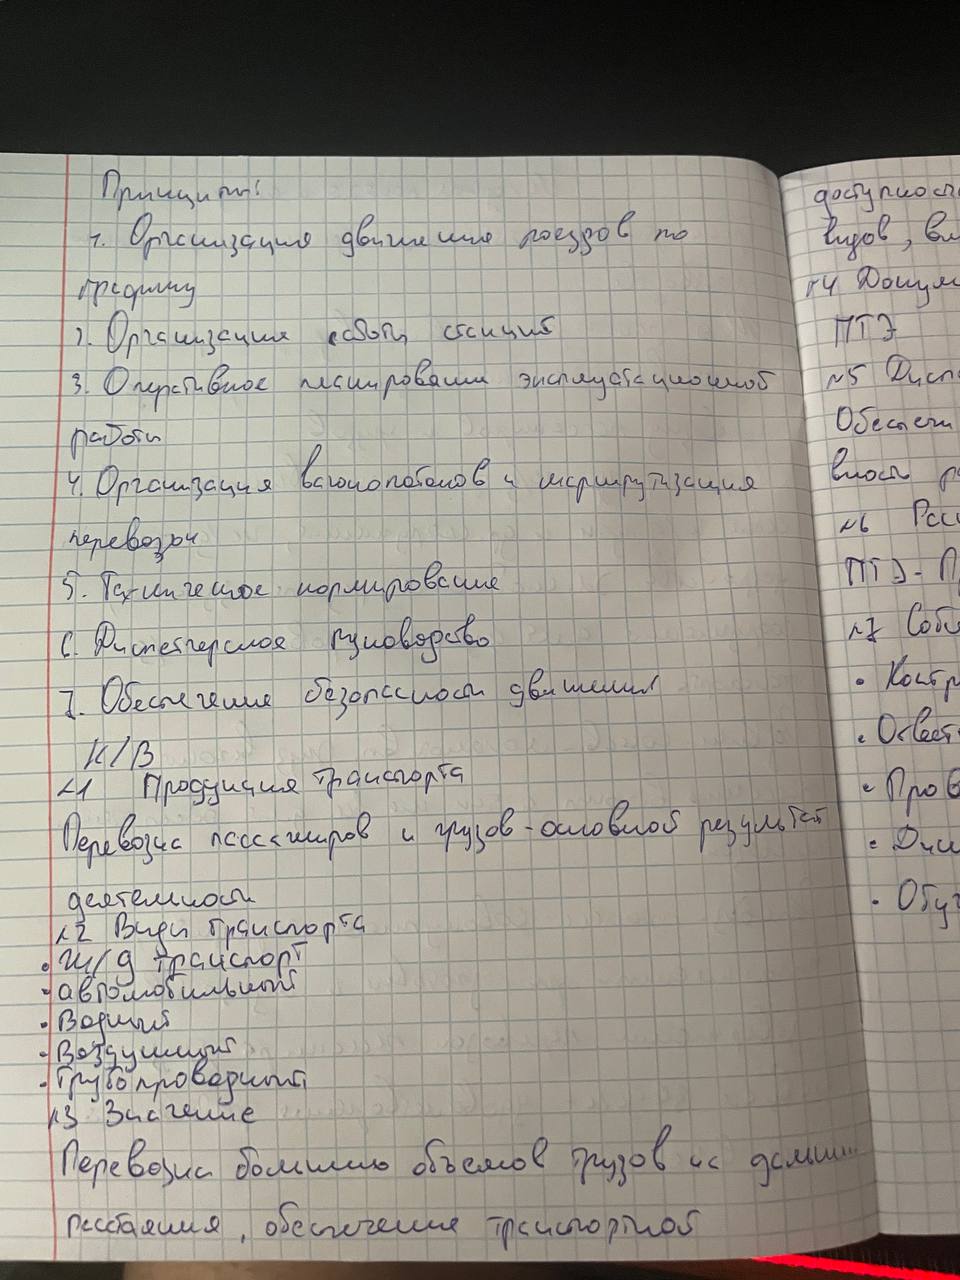 Принципы:
1. Организация движения поездов по
графику
2. Организация работы станций
3. Оперативное планирование эксплуатационной
работы
4. Организация вагонопотоков и маршрутизация
перевозок
5. Техническое нормирование
6. Диспетчерское руководство
7. Обеспечение безопасности движения
К/В
№1 Продукция транспорта
Перевозка пассажиров и грузов - основной результат
деятельности
№2 Виды транспорта
• Ж/д транспорт
• автомобильный
• Водный
• Воздушный
• Трубопроводный
№3 Значение
Перевозки большого объемов грузов на дальн...
расстояния, обеспечение транспортной
доступнос
видов, вл
№4 Докум
ПТЭ
№5 Диспе
Обеспечи
вность р
№6 Расс
ПТЭ - П
№7 Собл
• Контр
• Ответ
• Пров
• Дис
• Обуч